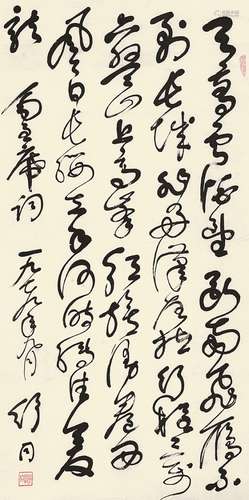 天高雲淡望斷南飛雁不
到長城非好漢屈指行程二萬
六盤山上高峰紅旗漫卷西
風今日長纓在手何時縛住蒼
龍
毛主席詞 一九七九年 月 舒同